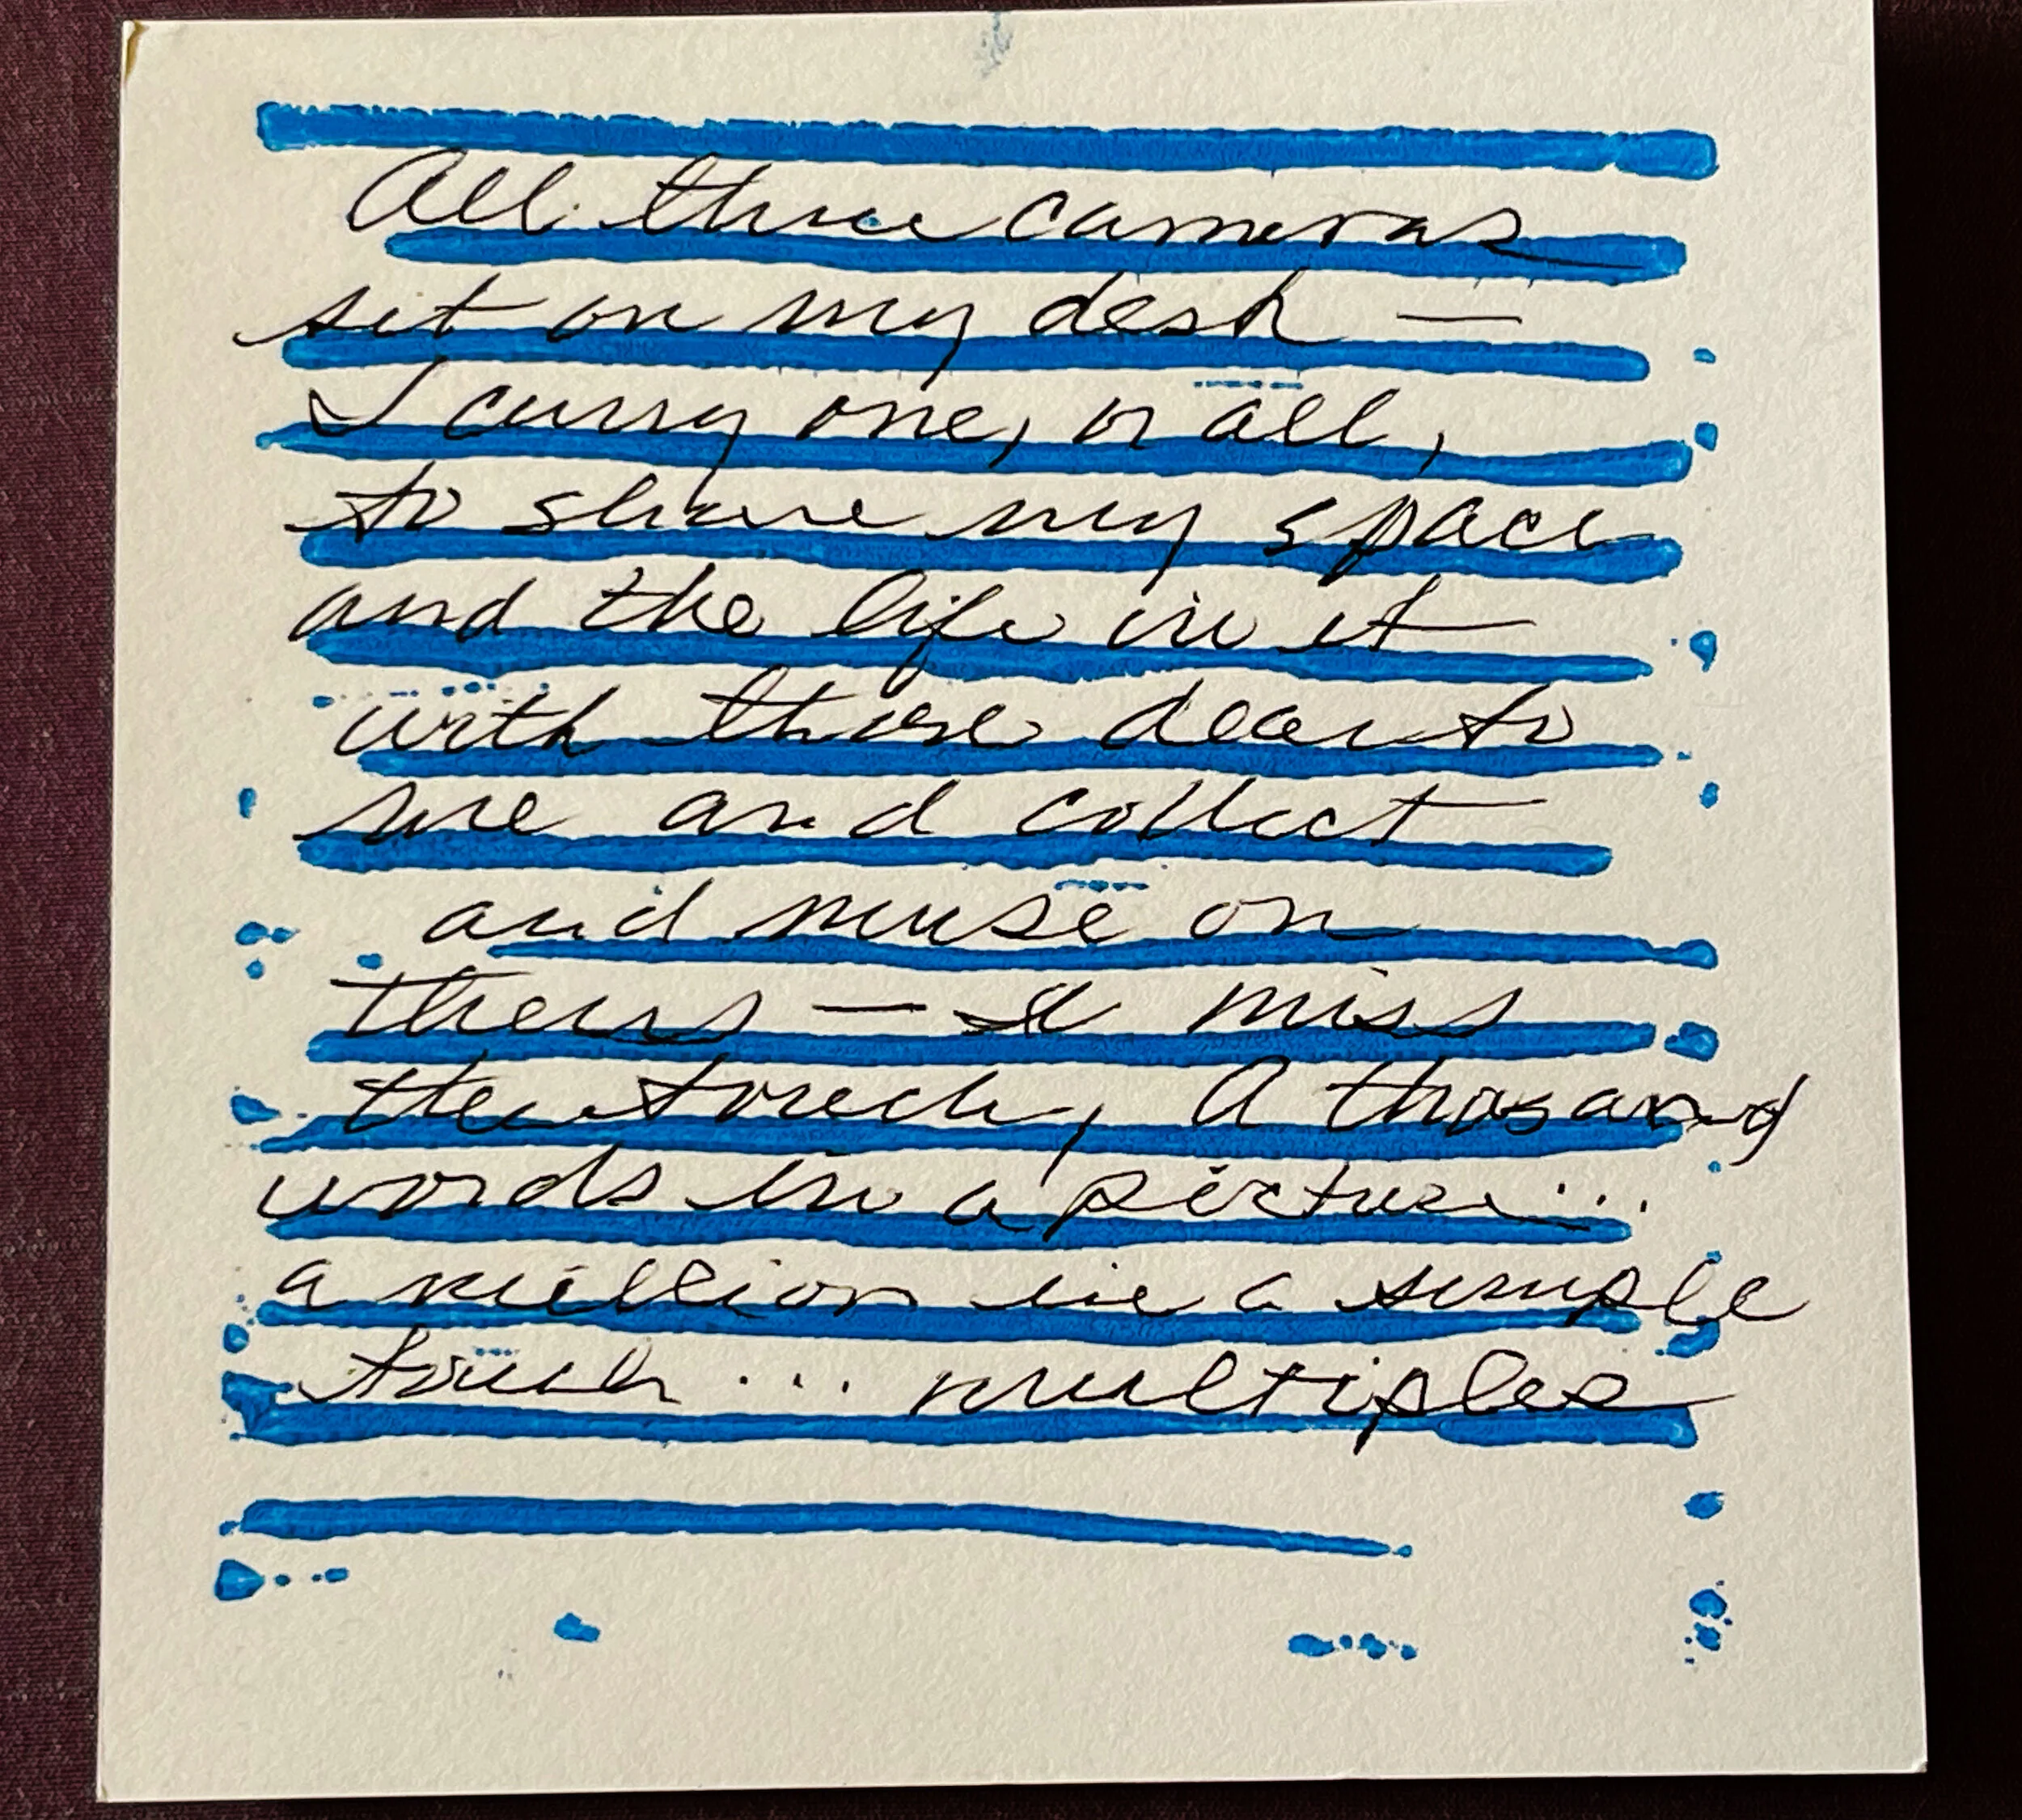 All three cameras
sit on my desk —
I carry one, or all,
to share my space
and the life in it
with those dear to
me and collect
and muse on
theirs — I miss
the touch, A thosand
words in a picture...
a million in a simple
touch... multiples